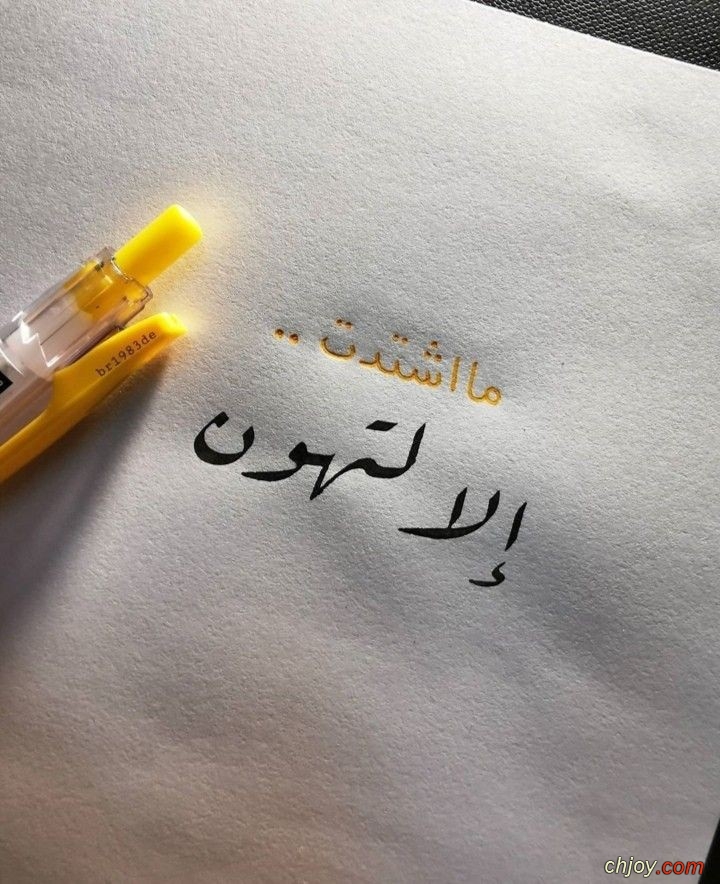 br1983de
مااشتدت ..
إلا لتهون
chjoy.com